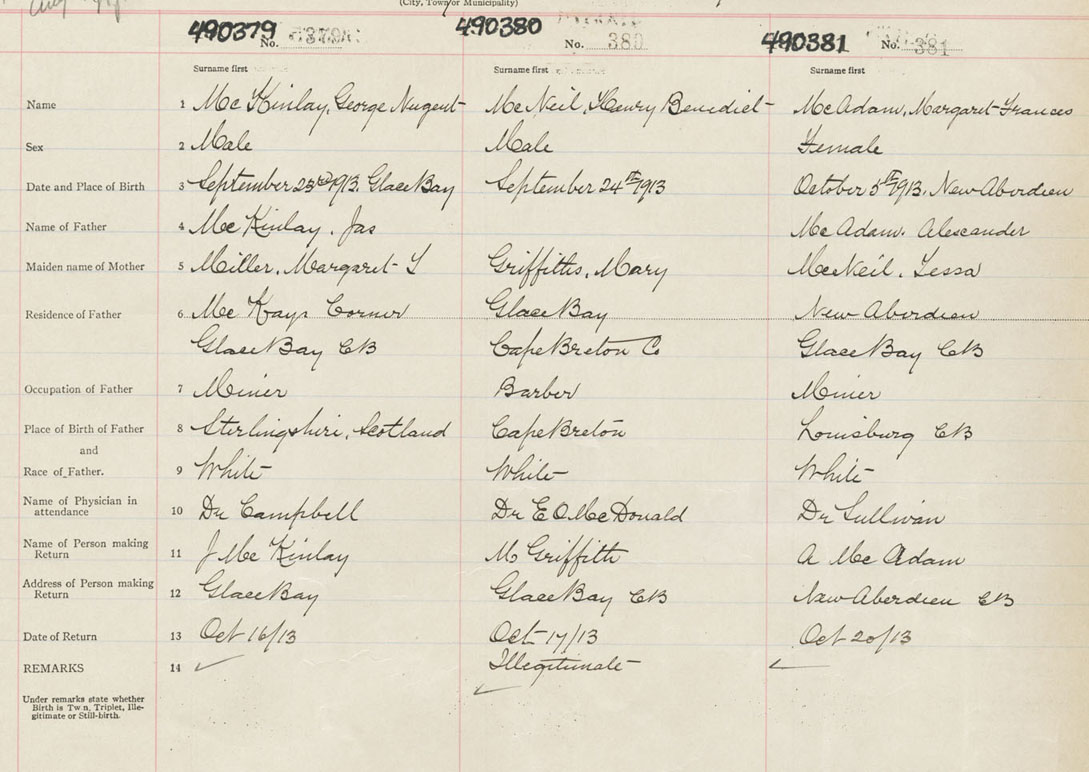 (City, Town or Municipality)
490379 490380 490381
No. No. 380 No. 381
Surname first Surname first Surname first
Name 1 McKinlay, George Nugent McNeil, Henry Benedict McAdam, Margaret Frances
Sex 2 Male Male Female
Date and Place of Birth 3 September 23rd 1913. Glace Bay September 24th 1913 October 5th 1913. New Aberdeen
Name of Father 4 McKinlay. Jas McAdam. Alexander
Maiden name of Mother 5 Miller, Margaret Griffiths, Mary MacNeil, Tessa
Residence of Father 6 McKays Corner Glace Bay New Aberdeen
Glace Bay CB Cape Breton Co Glace Bay CB
Occupation of Father 7 Miner Barber Miner
Place of Birth of Father 8 Sterlingshire, Scotland Cape Breton Louisburg CB
and
Race of Father. 9 White White White
Name of Physician in attendance 10 Dr Campbell Dr E O McDonald Dr Sullivan
Name of Person making Return 11 J McKinlay M Griffith A McAdam
Address of Person making Return 12 Glace Bay Glace Bay CB New Aberdeen CB
Date of Return 13 Oct 16/13 Oct 17/13 Oct 20/13
REMARKS 14 Illegitimate
Under remarks state whether
Birth is Twin, Triplet, Ille-
gitimate or Still-birth.